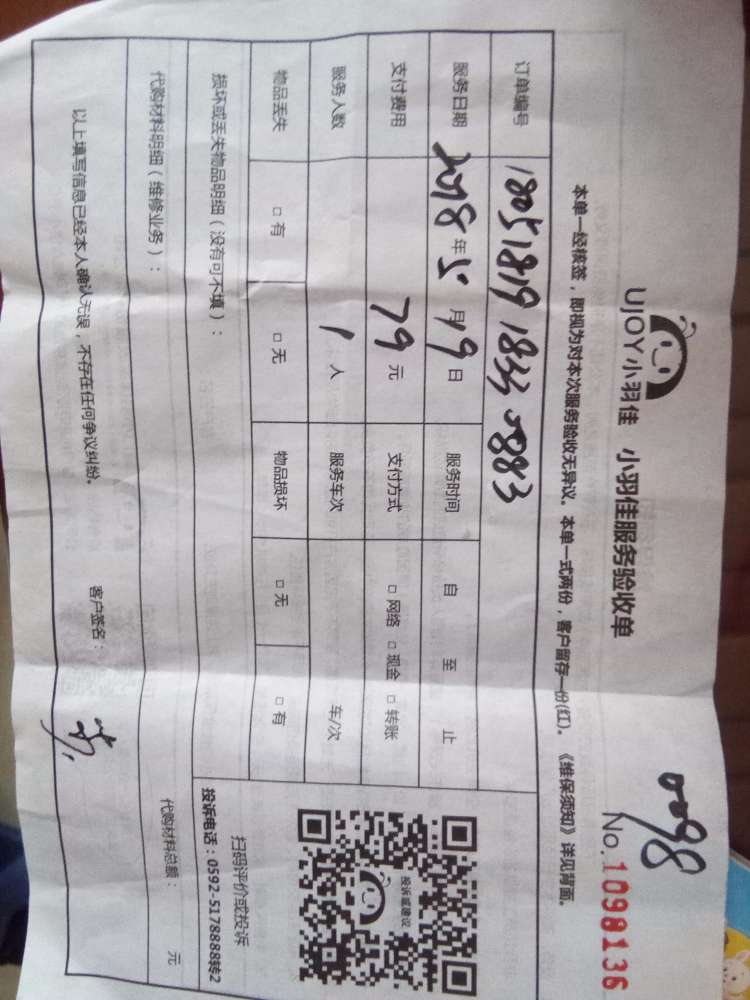 0098
UJOY小羽佳 小羽佳服务验收单 No.1098136
本单一经核签，即视为对本次服务验收无异议。本单一式两份，客户留存一份(红)。《维保须知》详见背面。
订单编号 18051819 1833 0883
服务日期 2018年5月19日 服务时间 自 至 止
支付费用 79元 支付方式 □网络 □现金 □转账
服务人数 1人 服务车次 车/次
物品丢失 □有 □无 物品损坏 □无 □有
损坏或丢失物品明细（没有可不填）：
投诉或建议
扫码评价或投诉
投诉电话：0592-5178888转2
代购材料明细（维修业务）： 代购材料总额： 元
以上填写信息已经本人确认无误，不存在任何争议纠纷。 客户签名：